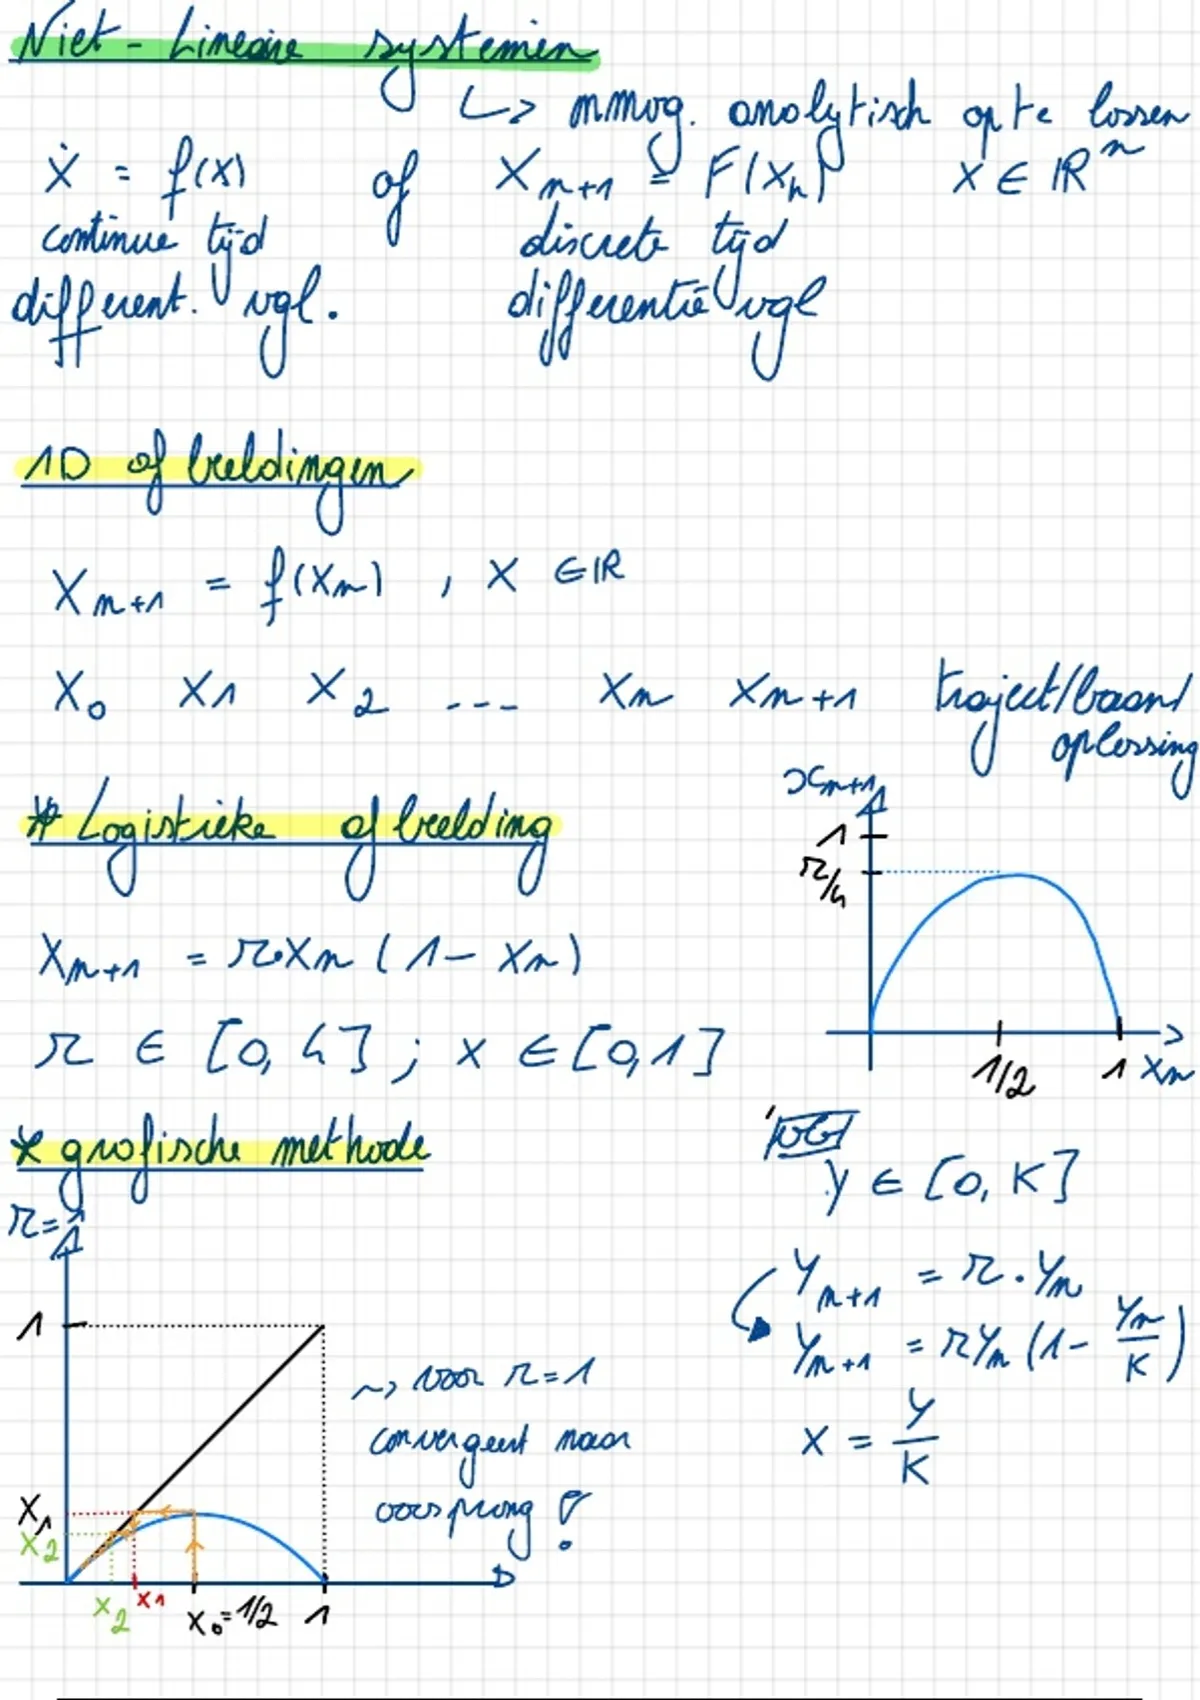 Niet-Lineaire systemen
↳ onmog. analytisch op te lossen
ẋ = f(x) of X_{n+1} = F(X_n) X ∈ ℝ^n
continue tijd discrete tijd
different. vgl. differentie vgl
1D afbeeldingen
X_{n+1} = f(X_n) , X ∈ ℝ
X_0 X_1 X_2 --- X_n X_{n+1} traject/baan/
oplossing
* Logistieke afbeelding
X_{n+1} = r·X_n (1 - X_n)
r ∈ [0, 4] ; x ∈ [0,1]
x_{n+1}
1
r/4
1/2 1 X_n
y ∈ [0, K]
y_{n+1} = r·y_n
y_{n+1} = r y_n (1 - y_n/K)
x = y/K
* grafische methode
r=1
1
~> voor r=1
convergeert naar
oorsprong !
X_1
X_2
X_2 X_1 X_0=1/2 1